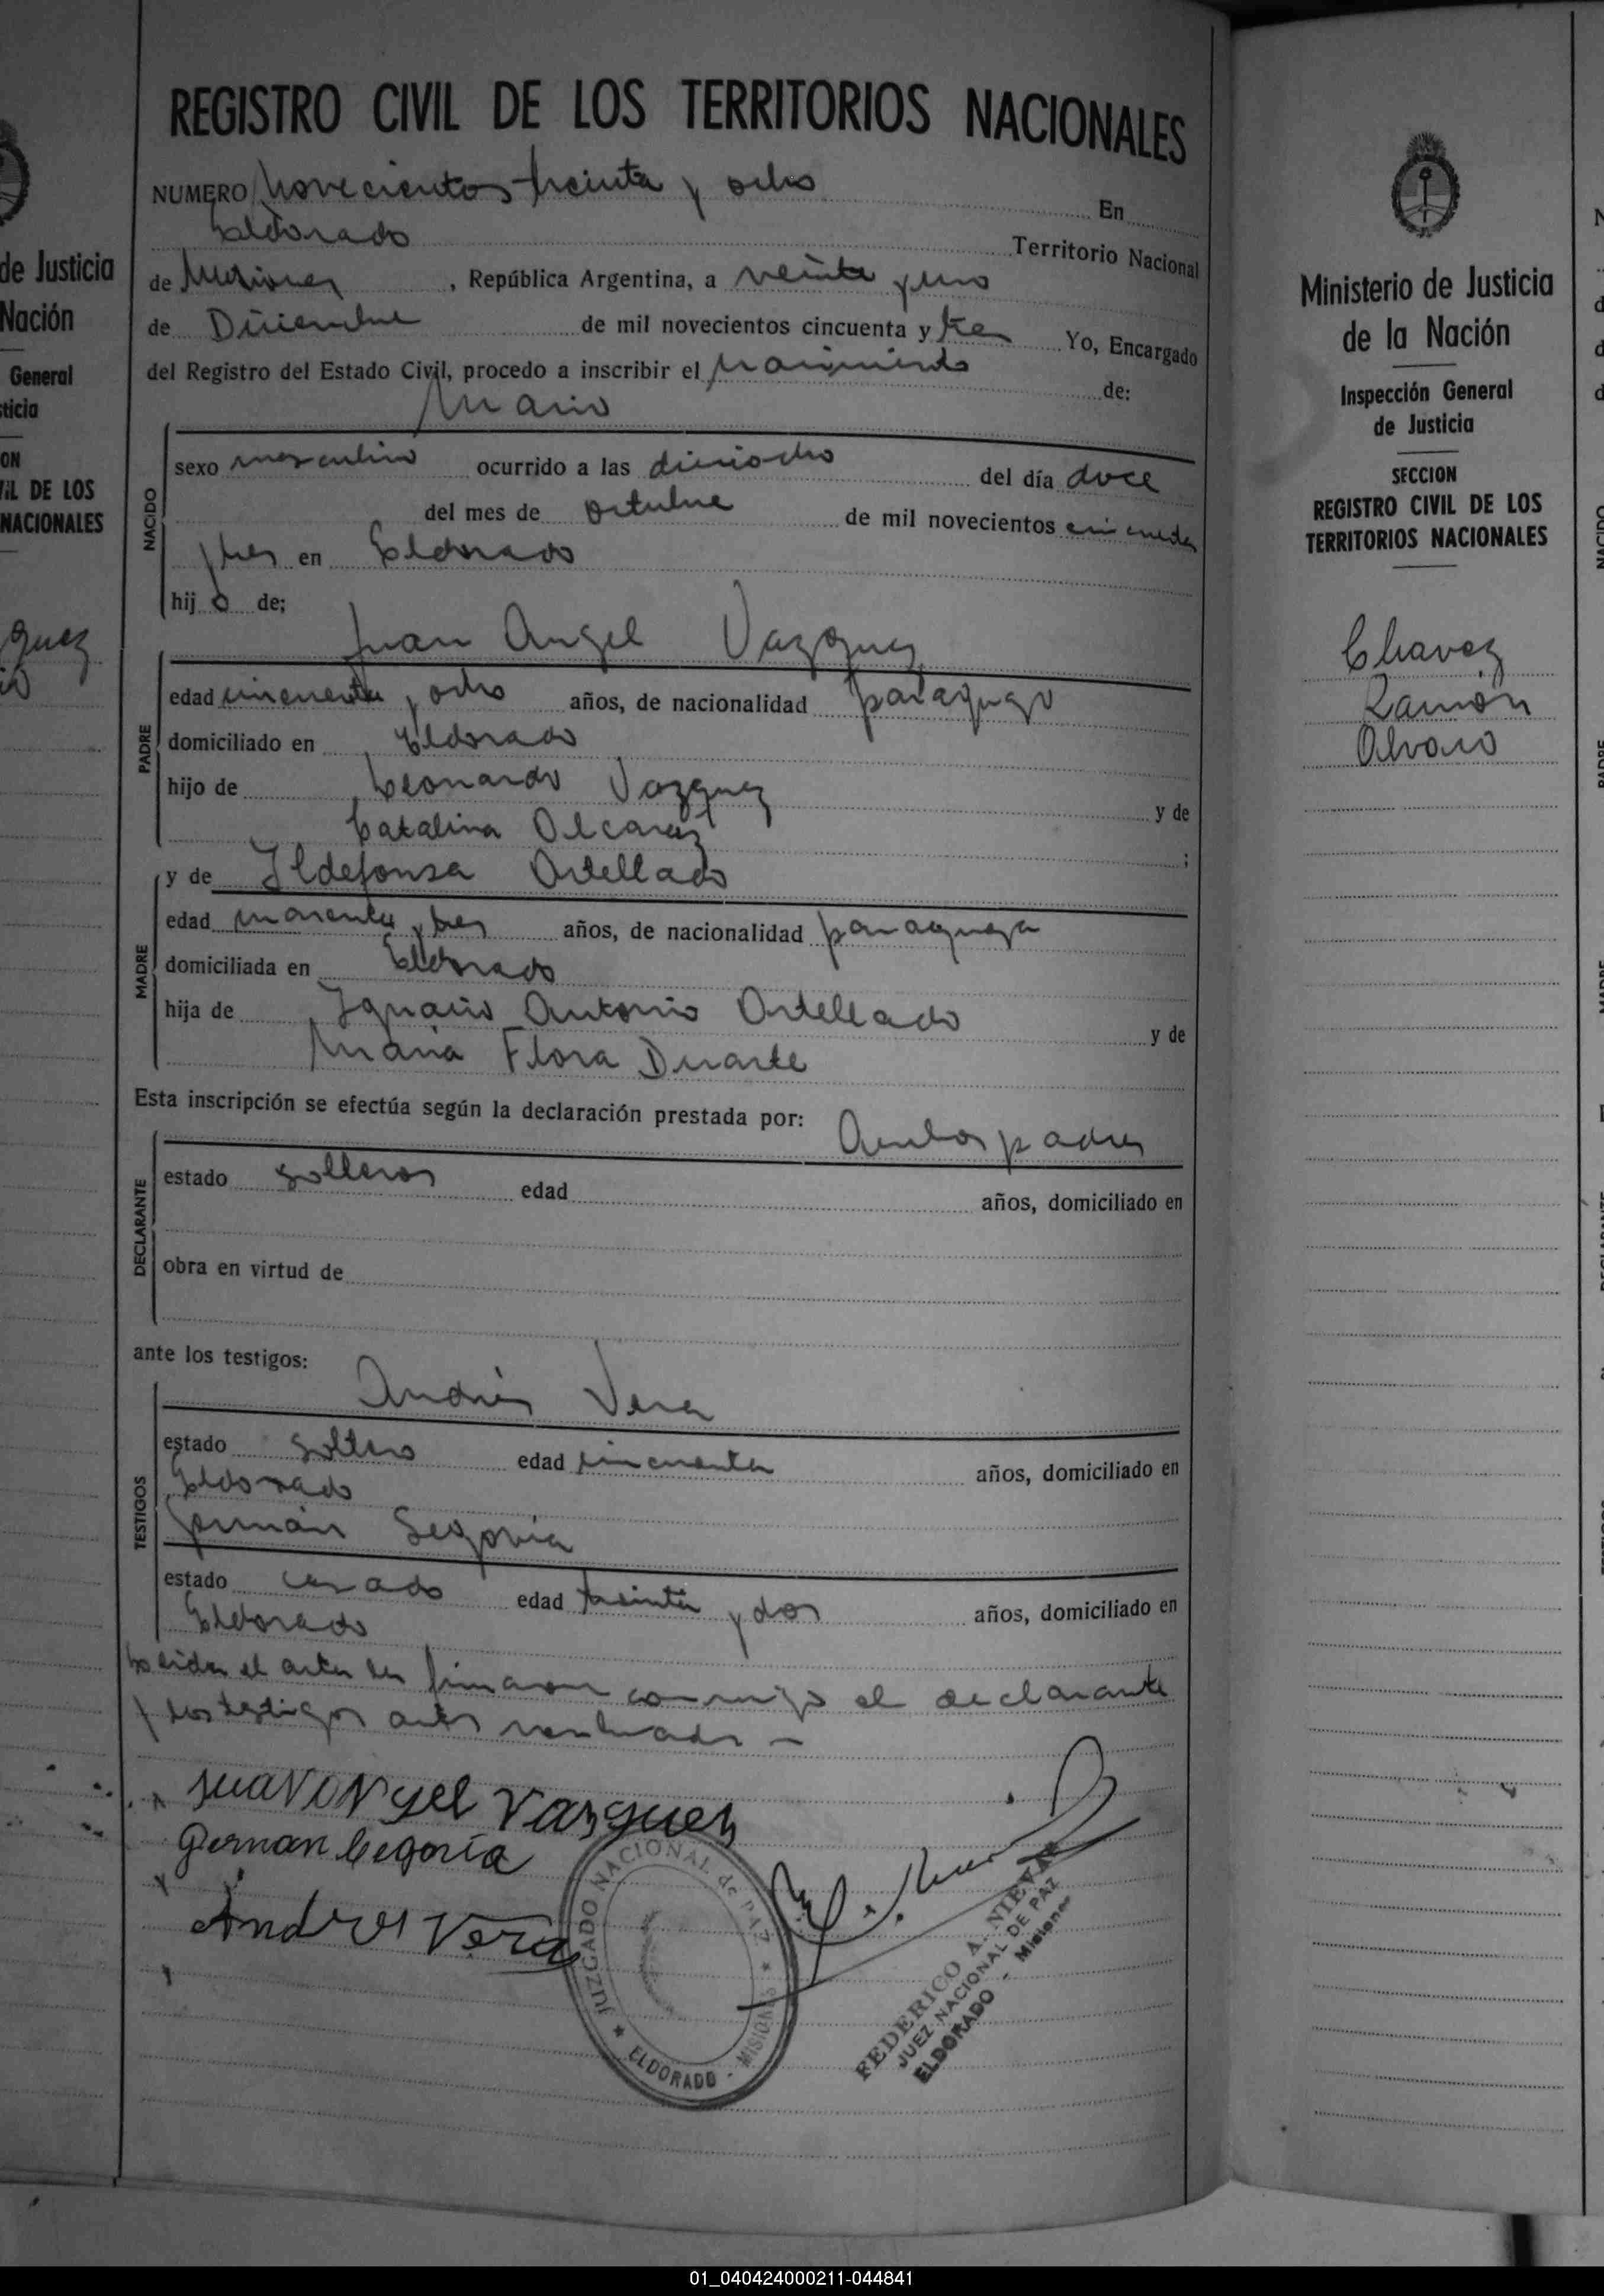 de Justicia
Nación
General
ticia
ON
IL DE LOS
NACIONALES
guez
REGISTRO CIVIL DE LOS TERRITORIOS NACIONALES
NUMERO Novecientos treinta y ocho En
Eldorado Territorio Nacional
de Misiones, República Argentina, a veinte y uno
de Diciembre de mil novecientos cincuenta y tres Yo, Encargado
del Registro del Estado Civil, procedo a inscribir el nacimiento de:
Mario
NACIDO
sexo masculino ocurrido a las dieciocho del día doce
del mes de octubre de mil novecientos cincuenta
y tres en Eldorado
hij o de;
Juan Angel Vazquez
PADRE
edad cincuenta y ocho años, de nacionalidad paraguayo
domiciliado en Eldorado
hijo de Leonardo Vazquez y de
Catalina Alcaraz ;
y de Ildefonsa Ortellado
MADRE
edad cuarenta y tres años, de nacionalidad paraguaya
domiciliada en Eldorado
hija de Ignacio Antonio Ortellado y de
Maria Flora Duarte
Esta inscripción se efectúa según la declaración prestada por: Ambos padres
DECLARANTE
estado solteros edad años, domiciliado en
obra en virtud de
ante los testigos:
Andrés Vera
TESTIGOS
estado soltero edad cincuenta años, domiciliado en
Eldorado
Germán Segovia
estado casado edad treinta y dos años, domiciliado en
Eldorado
Leida el acta la firmaron conmigo el declarante
y los testigos antes nombrados -
Juan Angel Vazquez
German Segovia
Andres Vera
JUZGADO NACIONAL de PAZ
ELDORADO - MISIONES
FEDERICO A. NIEVAS
JUEZ NACIONAL DE PAZ
ELDORADO - Misiones
Ministerio de Justicia
de la Nación
Inspección General
de Justicia
SECCION
REGISTRO CIVIL DE LOS
TERRITORIOS NACIONALES
Chavez
Ramón
Alvaro
NACIDO
01_040424000211-044841